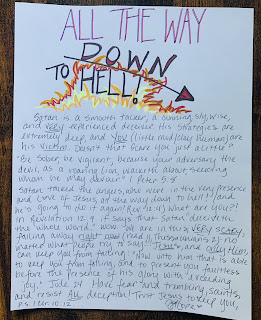 ALL THE WAY
DOWN
TO HELL!
Satan is a smooth talker, a cunning, sly, wise,
and very experienced deceiver. His strategies are
extremely deep and you (little mud/clay human) are
his victim. Doesn't that scare you just a little?
"Be sober, be vigilent; because your adversary the
devil, as a roaring lion, walketh about seeking
whom he may devour" I Peter 5:8
Satan talked the angels, who were in the very presence
and love of Jesus, all the way down to hell!! And
he's going to do it again! (Rev 12:4) What are you??
In Revelation 12:9 it says that Satan "deceiveth
the whole world." Wow folks, all in this is very scary,
falling away right now (read II Thessalonians 2) no
matter what people try to say!!! Jesus, and only Him,
can keep you from falling. "Now unto him that is able
to keep you from falling, and to present you faultless
before the presence of his glory with exceeding
joy," Jude 24 Have fear and trembling, Saints,
and resist ALL deception! Trust Jesus to keep you,
P.S. 1 Cor. 10:12